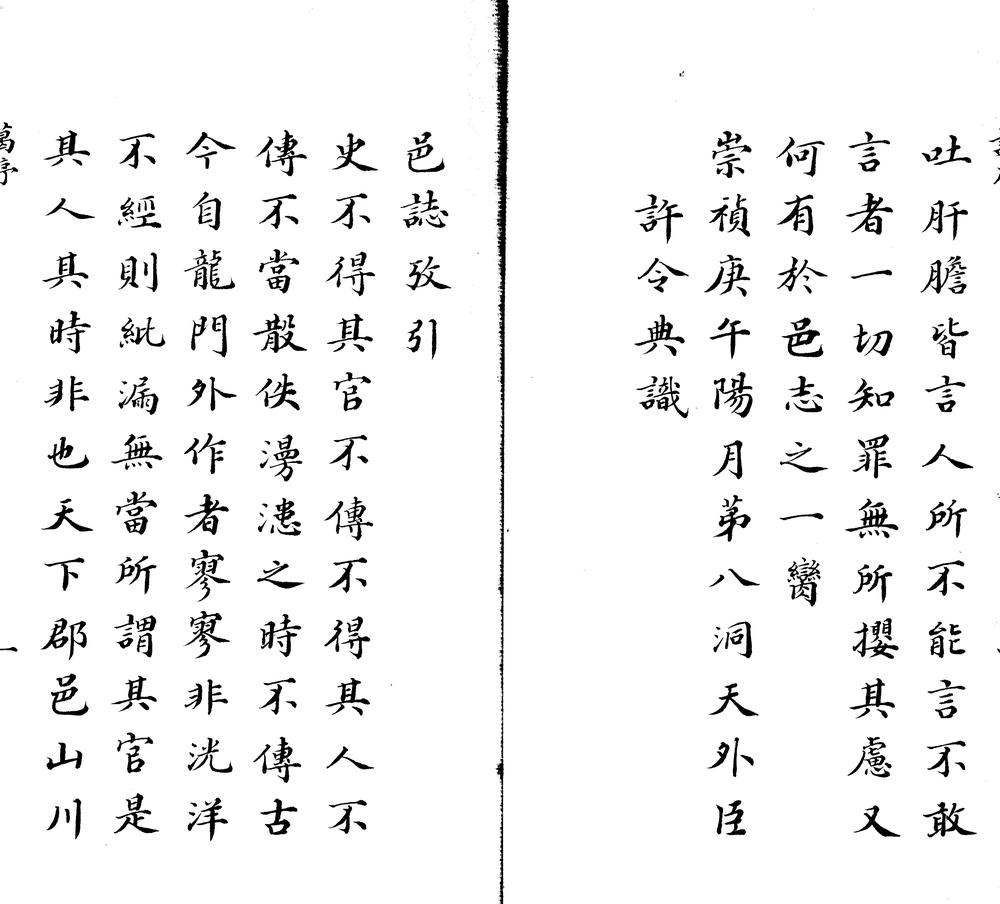 吐肝膽皆言人所不能言不敢
言者一切知罪無所攖其慮又
何有於邑志之一臠
崇禎庚午陽月第八洞天外臣
許令典識
邑誌攷引
史不得其官不傳不得其人不
傳不當散佚漫漶之時不傳古
今自龍門外作者寥寥非洸洋
不經則紕漏無當所謂其官是
其人其時非也天下郡邑山川
萬序
一